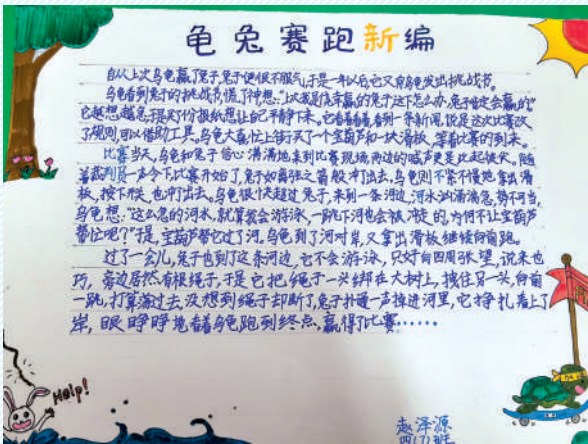 龟兔赛跑新编
自从上次乌龟赢了兔子,兔子便很不服气,于是一年以后它又向乌龟发出挑战书。
乌龟看到兔子的挑战书,慌了神想:"上次我是侥幸赢的兔子这下怎么办,兔子肯定会赢的"
它越想越急,于是买了份报纸想让自己平静下来。它看着看着,看到一条新闻,说是这次比赛改
了规则,可以借助工具。乌龟大喜,忙上街买了一个宝葫芦和一块滑板,等着比赛的到来。
比赛当天,乌龟和兔子信心满满地来到比赛现场,两边的喊声更是此起彼伏。随
着裁判员一声令下,比赛开始了,兔子如离弦之箭般冲了出去,乌龟则不紧不慢地拿出滑
板,按下开关,也冲了出去。乌龟很快超过兔子,来到一条河边,河水汹涌湍急,势不可当,
乌龟想:"这么急的河水,就算我会游泳,一跳下河也会被冲走的,为何不让宝葫芦
帮忙呢?"于是,宝葫芦帮它过了河。乌龟到了河对岸,又拿出滑板继续向前跑。
过了一会儿,兔子也到了这条河边,它不会游泳,只好向四周张望,说来也
巧,旁边居然有根绳子,于是它把绳子一头绑在大树上,拽住另一头,向前
一跳,打算荡过去,没想到绳子却断了,兔子扑通一声掉进河里,它挣扎着上了
岸,眼睁睁地看着乌龟跑到终点,赢得了比赛……
Help!
赵泽源
四(7)班